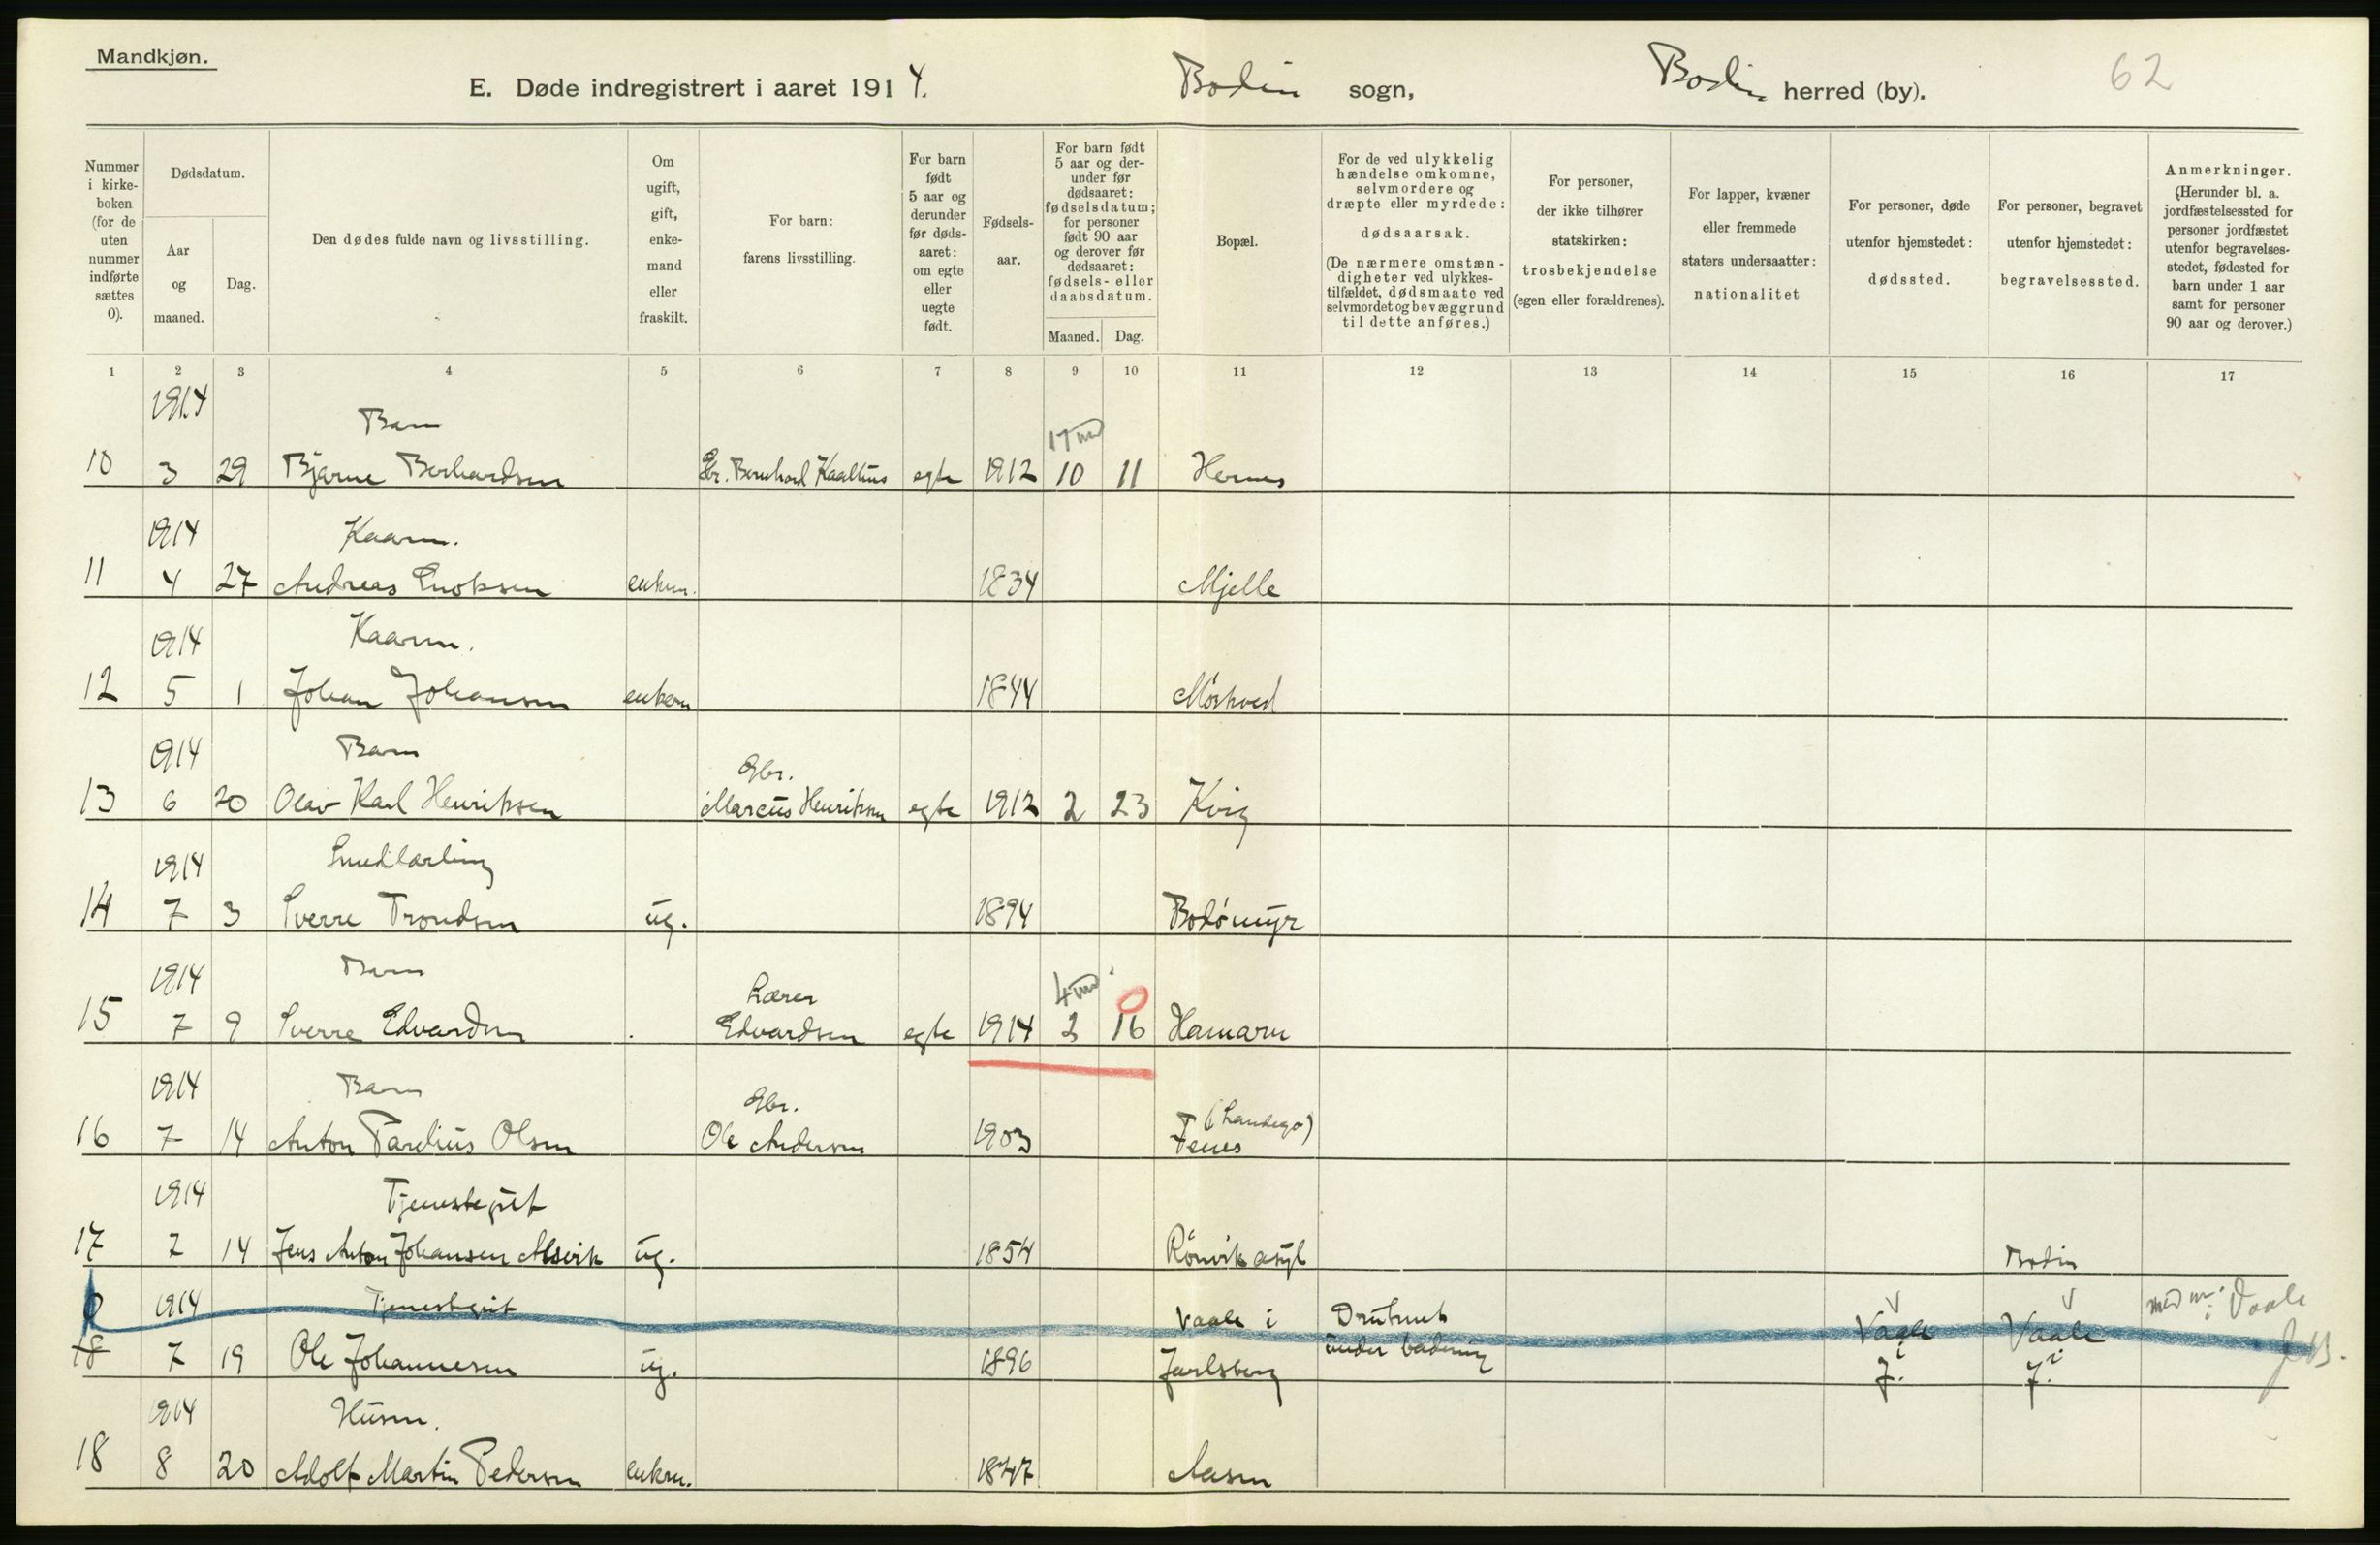 Mandkjøn.
E. Døde indregistrert i aaret 1914. Bodin sogn, Bodin herred (by). 62
Nummer i kirke- boken (for de uten nummer indførte sættes 0).
Dødsdatum.
Aar og maaned.
Dag.
Den dødes fulde navn og livsstilling.
Om ugift, gift, enke- mand eller fraskilt.
For barn: farens livsstilling.
For barn født 5 aar og derunder før døds- aaret: om egte eller uegte født.
Fødsels- aar.
For barn født 5 aar og der- under før dødsaaret: fødselsdatum; for personer født 90 aar og derover før dødsaaret: fødsels- eller daabsdatum.
Maaned. Dag.
Bopæl.
For de ved ulykkelig hændelse omkomne, selvmordere og dræpte eller myrdede: dødsaarsak. (De nærmere omstæn- digheter ved ulykkes- tilfældet, dødsmaate ved selvmordet og bevæggrund til dette anføres.)
For personer, der ikke tilhører statskirken: trosbekjendelse (egen eller forældrenes).
For lapper, kvæner eller fremmede staters undersaatter: nationalitet
For personer, døde utenfor hjemstedet: dødssted.
For personer, begravet utenfor hjemstedet: begravelsessted.
Anmerkninger. (Herunder bl. a. jordfæstelsessted for personer jordfæstet utenfor begravelses- stedet, fødested for barn under 1 aar samt for personer 90 aar og derover.)
1 2 3 4 5 6 7 8 9 10 11 12 13 14 15 16 17
1914 Barn 17 md
10 3 29 Bjarne Berhardsen Gbr. Bernhard Kaalhus egte 1912 10 11 Hernes
1914 Kaarm.
11 4 27 Andreas Enoksen enkem. 1834 Mjelle
1914 Kaarm.
12 5 1 Johan Johansen enkem 1844 Mørkved
1914 Barn Gbr.
13 6 20 Olav Karl Henriksen Marcus Henriksen egte 1912 2 23 Kvig
1914 Smedlærling
14 7 3 Sverre Trondsen ug. 1894 Bodømyr
1914 Barn Lærer 4 md 0
15 7 9 Sverre Edvardsen Edvardsen egte 1914 2 16 Hamarn
1914 Barn Gbr. (Landego)
16 7 14 Anton Parelius Olsen Ole Andersen 1903 Fenes
1914 Tjenestegut
17 7 14 Jens Anton Johansen Alsvik ug. 1854 Rönvik asyl Bodin
0 1914 Tjenestegut Vaale i Druknet Vaale Vaale med nr. i Vaale
18 7 19 Ole Johannesen ug. 1896 Jarlsberg under badning i J. i J.
1914 Husm.
18 8 20 Adolf Martin Pedersen enkem. 1847 Aasen